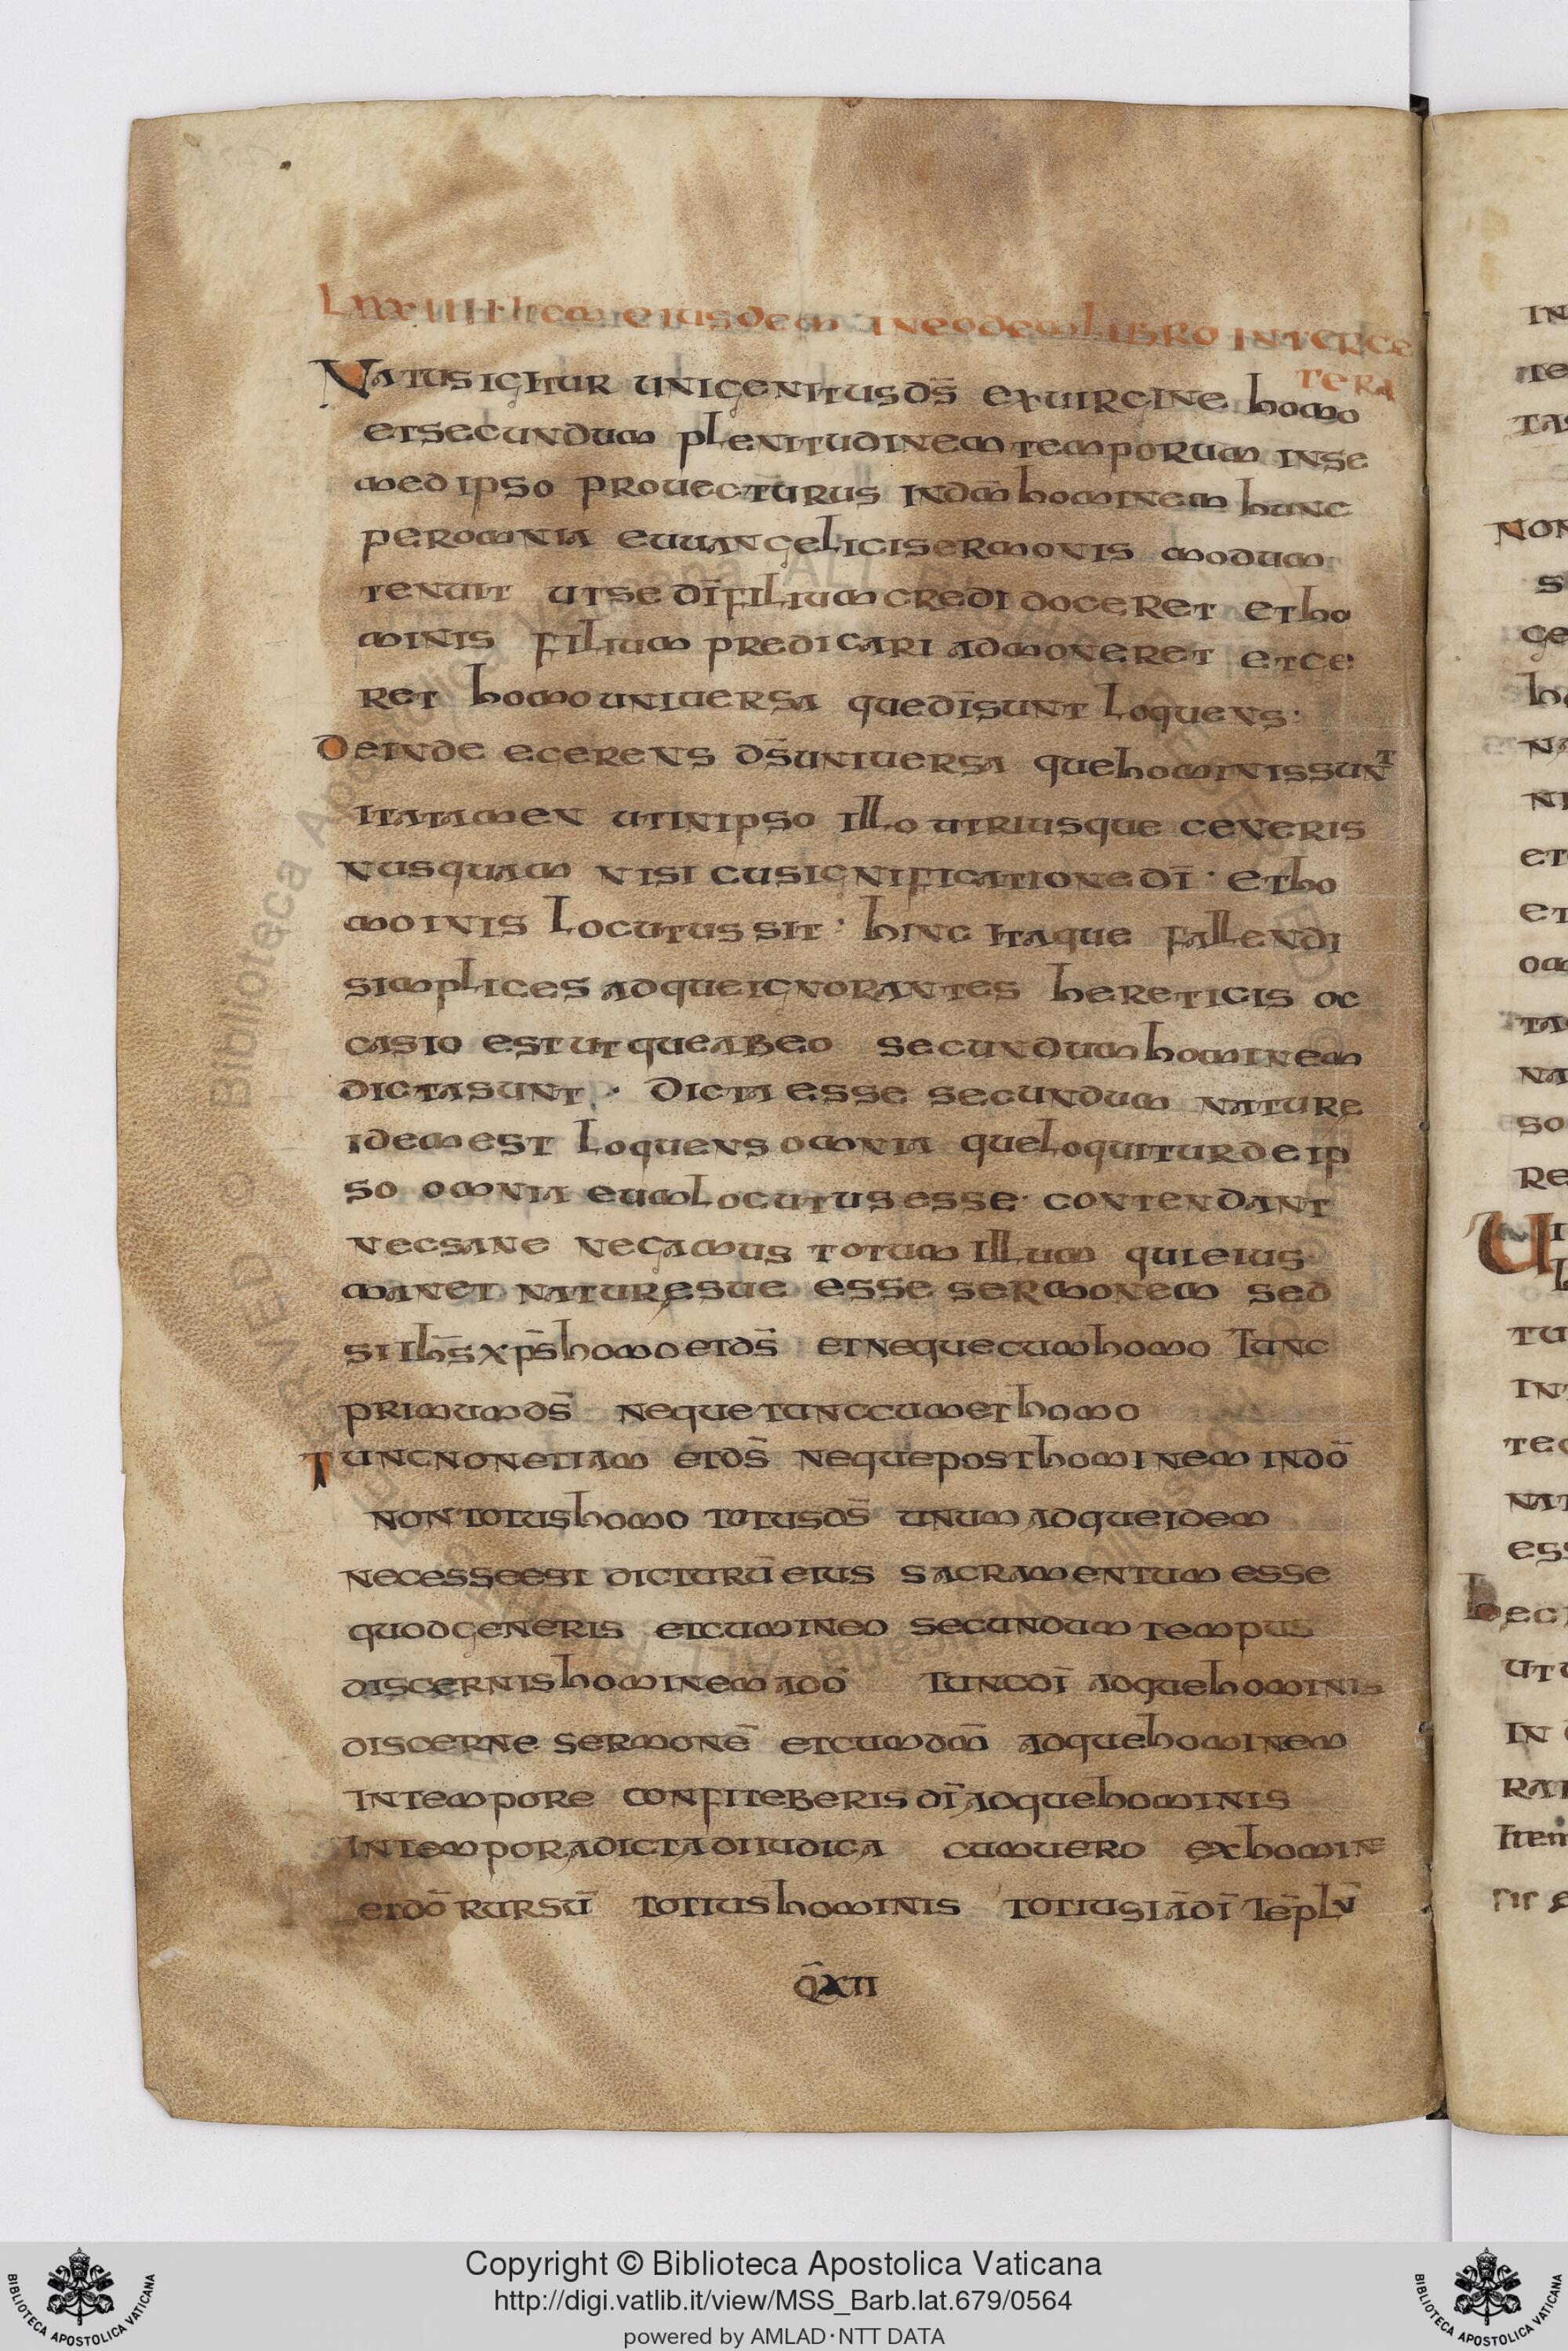 LXXIIII· Item eiusdem in eodem libro inter ce
tera
Natus igitur unigenitus d̄s ex uirgine homo
et secundum plenitudinem temporum in se
med ipso prouecturus in dm̄ hominem hunc
per omnia euuangelici sermonis modum
tenuit ut se dī filium credi doceret et ho
minis filium predicari admoneret et ce
ret homo uniuersa que dī sunt loquens·
Deinde ecerens d̄s uniuersa que hominis sunt
ita tamen ut in ipso illo utriusque generis
nusquam nisi cu significatione dī · et ho
moinis locutus sit · hinc itaque fallendi
simplices adque ignorantes hereticis oc
casio est ut que ab eo secundum hominem
dicta sunt · dicta esse secundum nature
idem est loquens omnia que loquitur de ip
so omnia eum locutus esse· contendant
nec sane negamus totum illum qui eius
manet nature sue esse sermonem sed
si ih̄s xp̄s homo et d̄s et neque cum homo tunc
primum d̄s neque tunc cum et homo
Tunc non etiam et d̄s neque post hominem in dō
non totus homo totus d̄s unum adque idem
necesse est dicturū eius sacramentum esse
quod generis et cum in eo secundum tempus
discernis hominem a dō tunc dī adque hominis
discerne sermonē et cum dm̄ adque hominem
in tempore confiteberis dī adque hominis
in tempora dicta diiudica cum uero ex homine
et dō rursū totius hominis totius iā dī tēplū
Q̄ XII
Copyright © Biblioteca Apostolica Vaticana
http://digi.vatlib.it/view/MSS_Barb.lat.679/0564
powered by AMLAD·NTT DATA